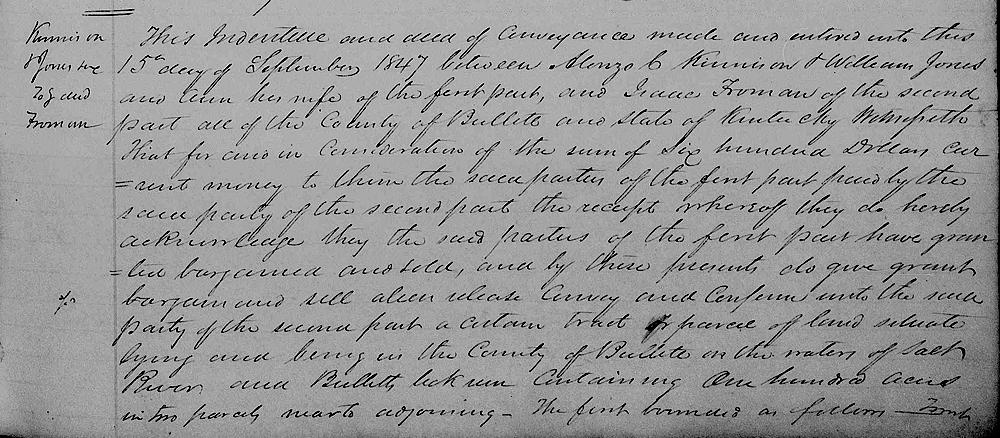 Kinnison
& Jones &c
To } deed
Froman
This Indenture and deed of Conveyance made and entered into this
15th day of September 1847 between Alonzo C Kinnison & William Jones
and Ann his wife of the first part, and Isaac Froman of the second
part all of the County of Bullitt and state of Kentucky Witnesseth
That for and in Consideration of the sum of Six hundred Dollars cur
=rent money to them the said parties of the first part paid by the
said party of the second part the receipt whereof they do hereby
acknowledge they the said parties of the first part have gran
=ted bargained and sold, and by these presents do give grant
bargain and sell alien release Convey and Confirm unto the said
party of the second part a certain tract or parcel of land situate
lying and being in the County of Bullitt on the waters of Salt
River and Bullitts lick run Containing One hundred acres
in two parcels near to adjoining - The first bounded as follows